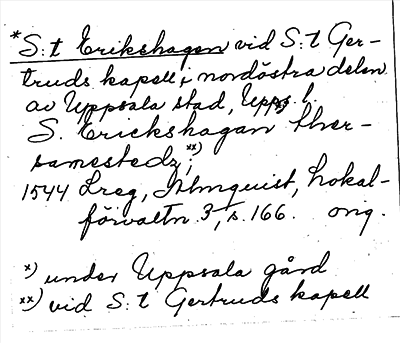 *S:t Erikshagen vid S:t Ger-
truds kapell i nordöstra delen
av Uppsala stad, Upps. l.
S. Erickshagan ther-
samestedz xx);
1544 Lreg, Almquist, Lokal-
förvaltn. 3, s. 166. orig.
x) under Uppsala gård
xx) vid S:t Gertruds kapell